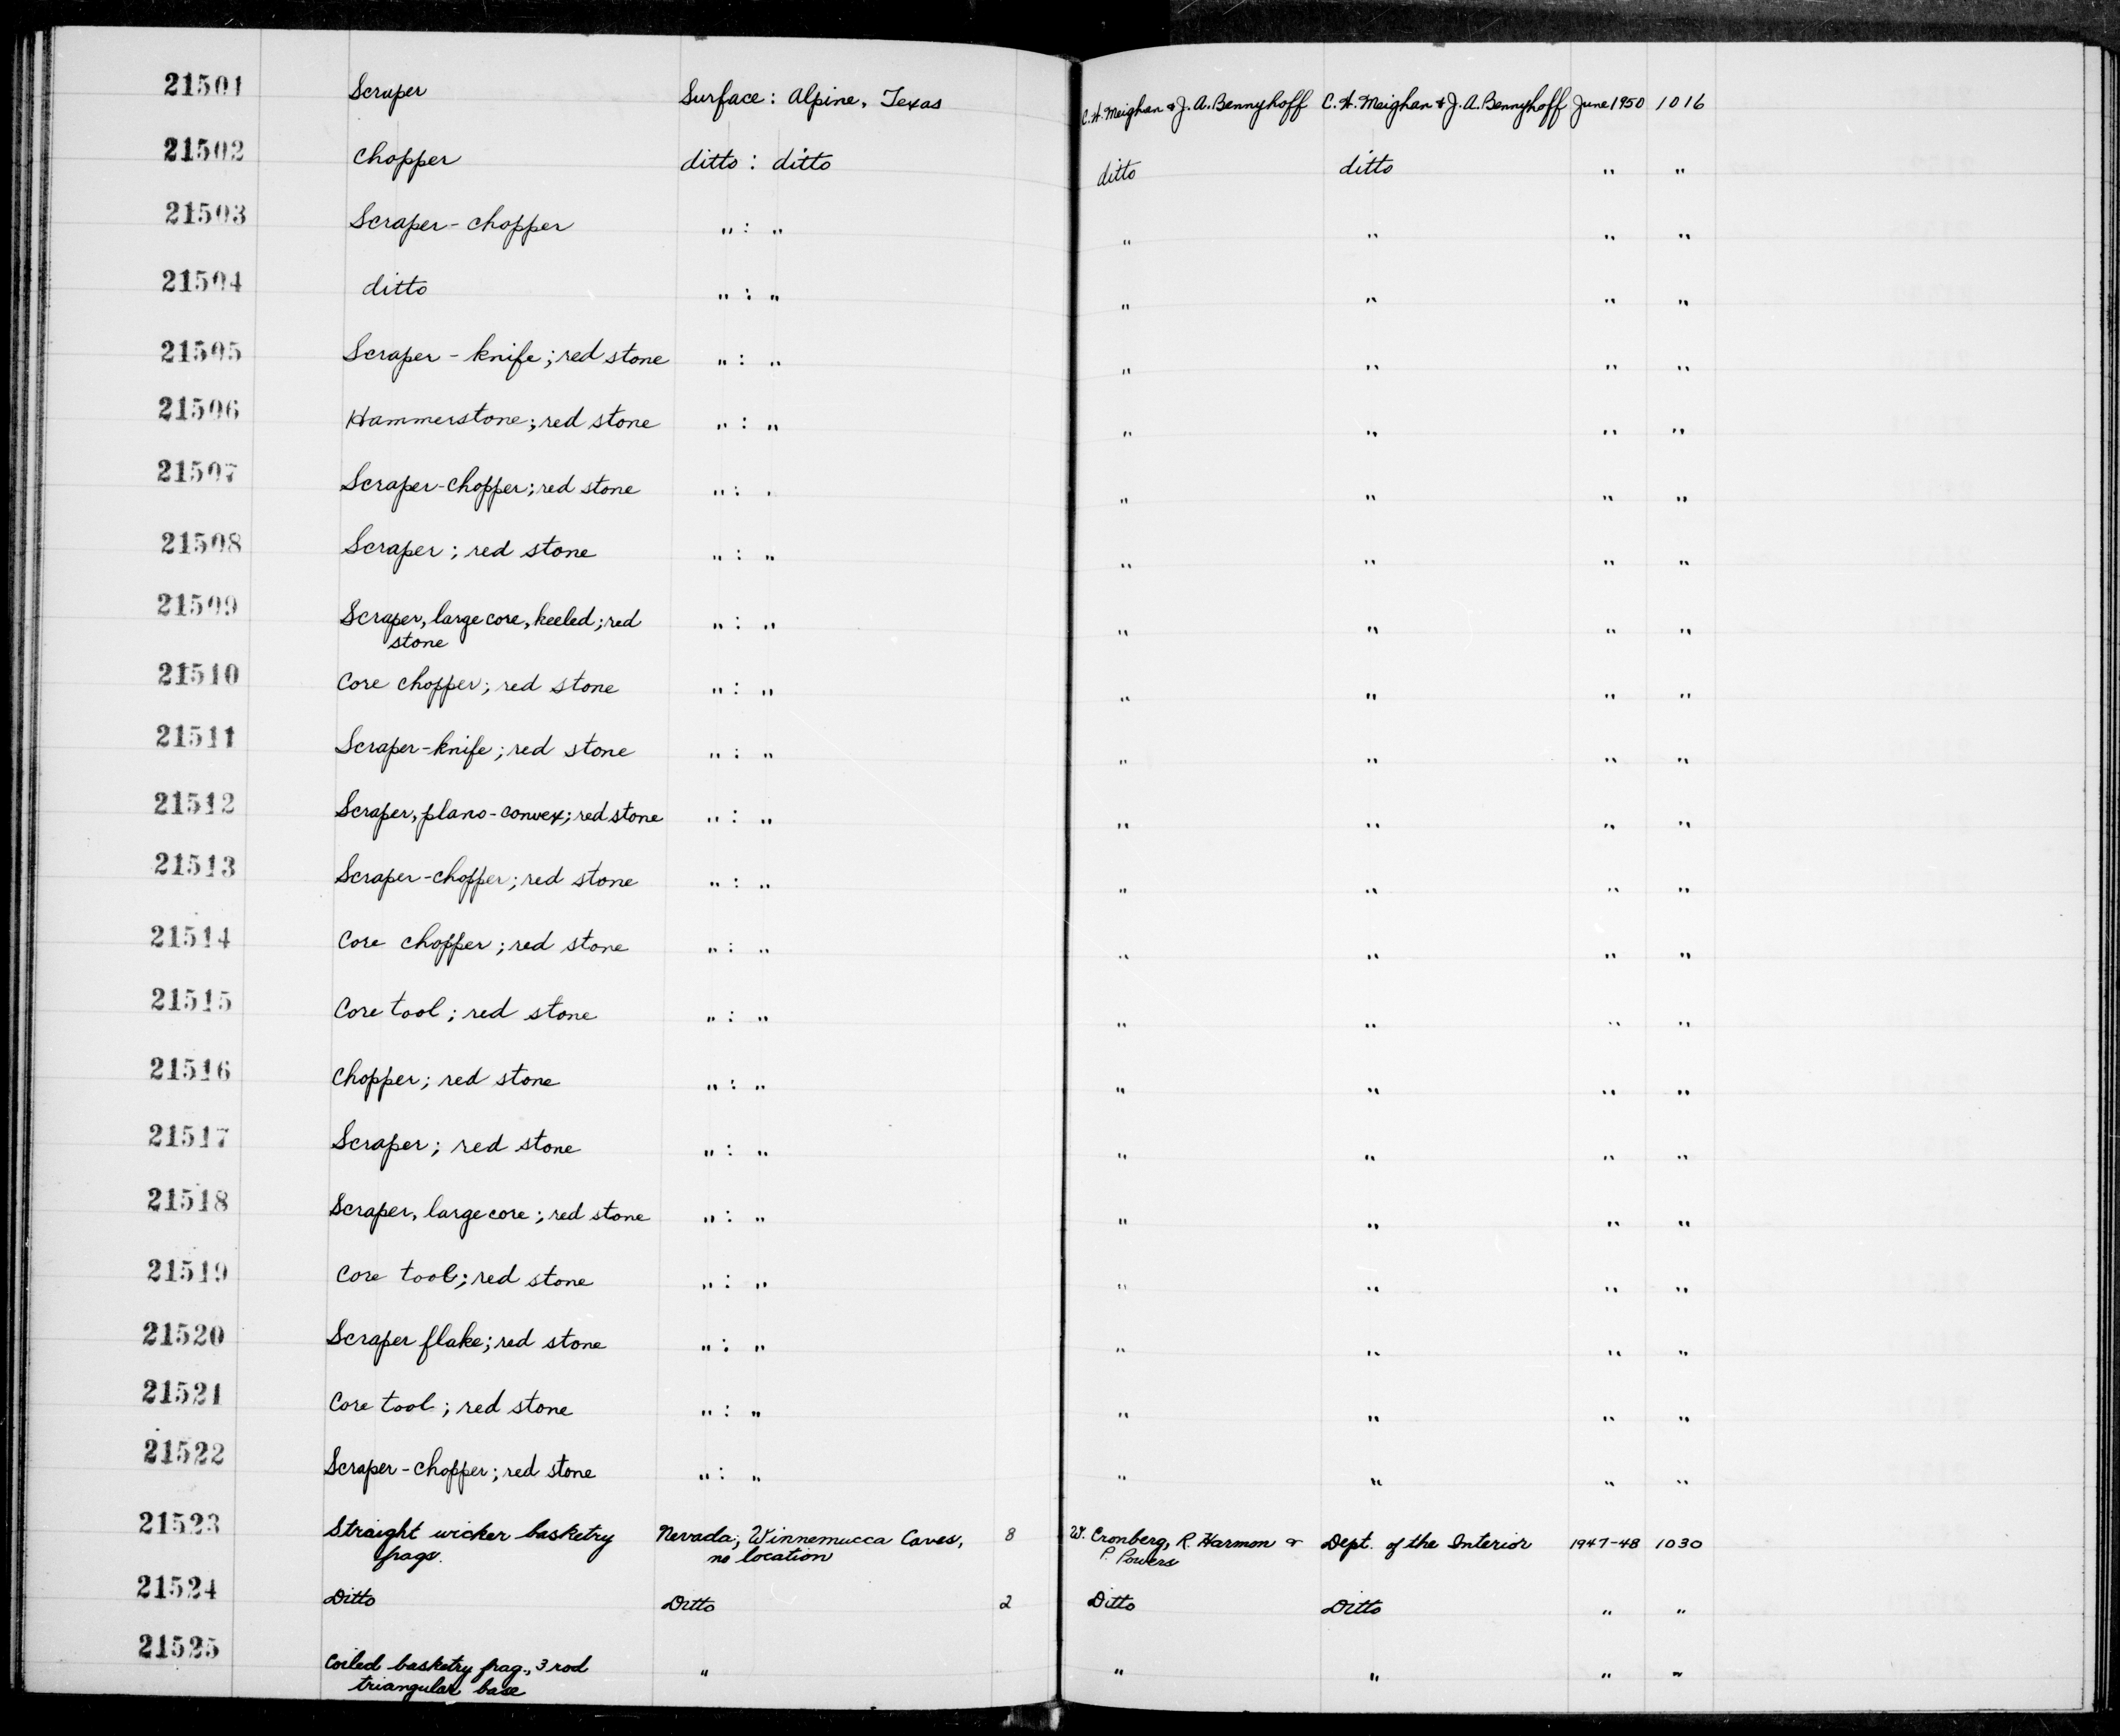 21501 Scraper Surface: Alpine, Texas C.W. Meighan & J.A. Bennyhoff C.W. Meighan & J.A. Bennyhoff June 1950 1016
21502 Chopper ditto : ditto ditto ditto " "
21503 Scraper-chopper " : " " " " "
21504 ditto " : " " " " "
21505 Scraper - knife; red stone " : " " " " "
21506 Hammerstone; red stone " : " " " " "
21507 Scraper-chopper; red stone " : " " " " "
21508 Scraper; red stone " : " " " " "
21509 Scraper, large core, keeled; red " : " " " " "
stone
21510 Core chopper; red stone " : " " " " "
21511 Scraper-knife; red stone " : " " " " "
21512 Scraper, plano-convex; red stone " : " " " " "
21513 Scraper-chopper; red stone " : " " " " "
21514 Core chopper; red stone " : " " " " "
21515 Core tool; red stone " : " " " " "
21516 Chopper; red stone " : " " " " "
21517 Scraper; red stone " : " " " " "
21518 Scraper, large core; red stone " : " " " " "
21519 Core tool; red stone " : " " " " "
21520 Scraper flake; red stone " : " " " " "
21521 Core tool; red stone " : " " " " "
21522 Scraper-chopper; red stone " : " " " " "
21523 Straight wicker basketry Nevada; Winnemucca Caves, 8 W. Cronberg, R. Harmon & Dept. of the Interior 1947-48 1030
frags. no location P. Powers
21524 Ditto Ditto 2 Ditto Ditto " "
21525 Coiled basketry frag., 3 rod " " " " "
triangular base